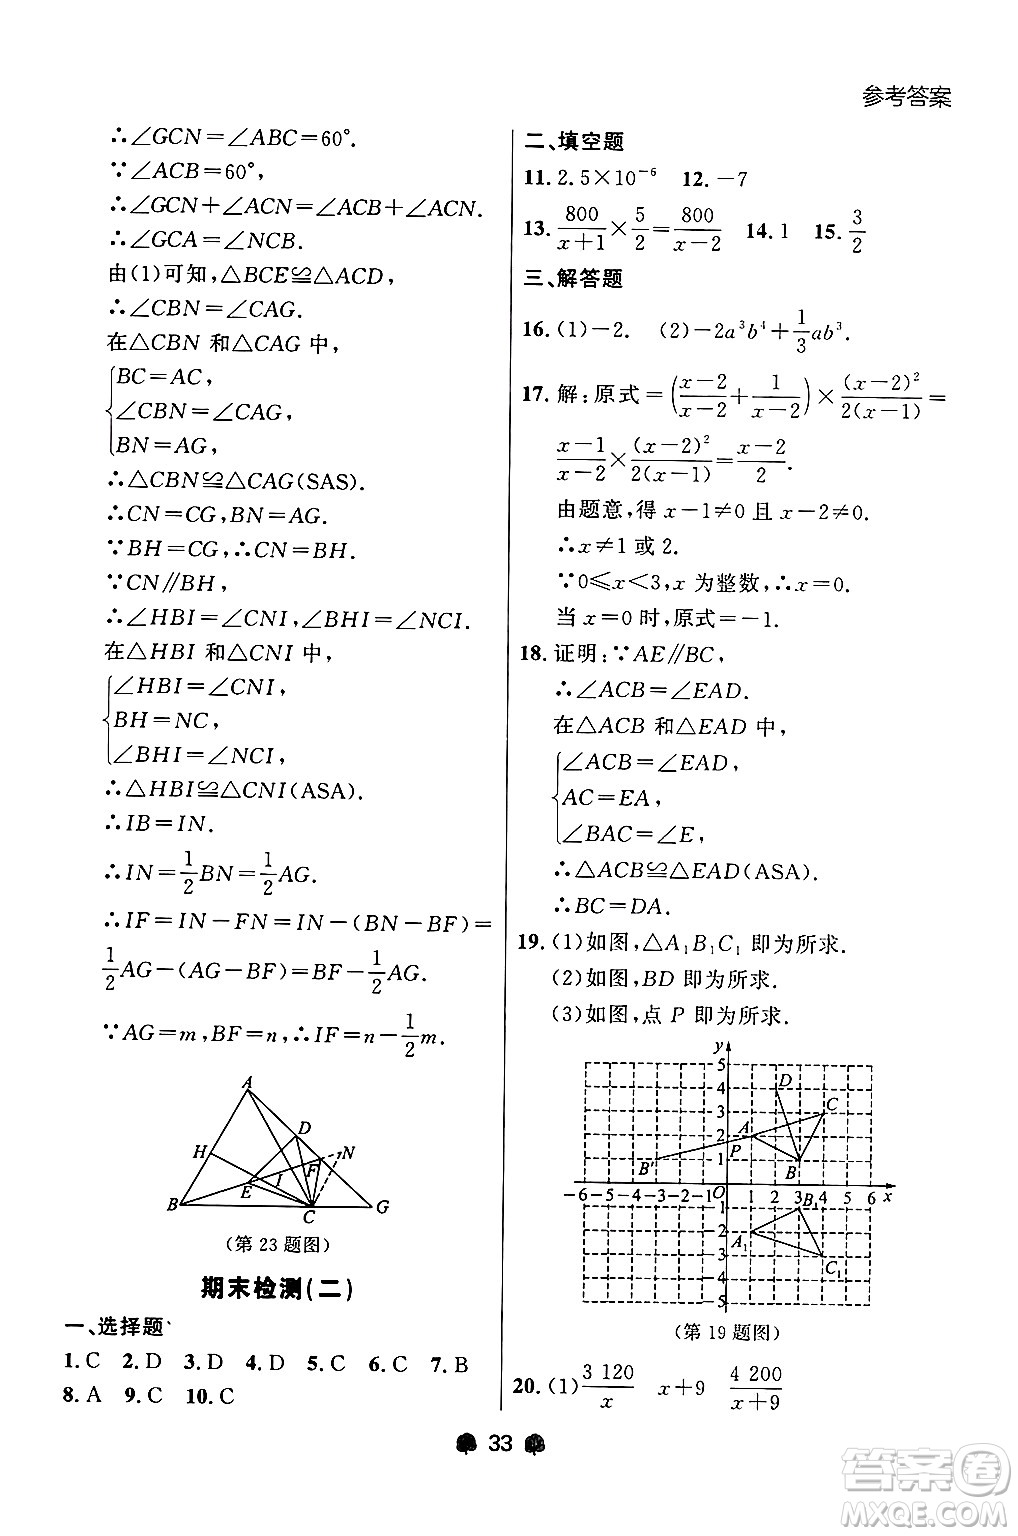 参考答案
∴∠GCN=∠ABC=60°.
∵∠ACB=60°,
∴∠GCN+∠ACN=∠ACB+∠ACN.
∴∠GCA=∠NCB.
由(1)可知,△BCE≌△ACD,
∴∠CBN=∠CAG.
在△CBN 和△CAG 中,
{BC=AC,
∠CBN=∠CAG,
BN=AG,
∴△CBN≌△CAG(SAS).
∴CN=CG,BN=AG.
∵BH=CG,∴CN=BH.
∵CN∥BH,
∴∠HBI=∠CNI,∠BHI=∠NCI.
在△HBI 和△CNI 中,
{∠HBI=∠CNI,
BH=NC,
∠BHI=∠NCI,
∴△HBI≌△CNI(ASA).
∴IB=IN.
∴IN=1/2BN=1/2AG.
∴IF=IN-FN=IN-(BN-BF)=
1/2AG-(AG-BF)=BF-1/2AG.
∵AG=m,BF=n,∴IF=n-1/2m.
A
D
H
N
F
E
I
B
C
G
(第 23 题图)
期末检测(二)
一、选择题
1. C 2. D 3. D 4. D 5. C 6. C 7. B
8. A 9. C 10. C
二、填空题
11. 2.5×10⁻⁶ 12. -7
13. 800/(x+1)×5/2=800/(x-2) 14. 1 15. 3/2
三、解答题
16. (1)-2. (2)-2a³b⁴+1/3ab³.
17. 解:原式=((x-2)/(x-2)+1/(x-2))×(x-2)²/2(x-1)=
(x-1)/(x-2)×(x-2)²/2(x-1)=(x-2)/2.
由题意,得 x-1≠0 且 x-2≠0.
∴x≠1 或 2.
∵0≤x<3,x 为整数,∴x=0.
当 x=0 时,原式=-1.
18. 证明:∵AE∥BC,
∴∠ACB=∠EAD.
在△ACB 和△EAD 中,
{∠ACB=∠EAD,
AC=EA,
∠BAC=∠E,
∴△ACB≌△EAD(ASA).
∴BC=DA.
19. (1)如图,△A₁B₁C₁ 即为所求.
(2)如图,BD 即为所求.
(3)如图,点 P 即为所求.
y
5
4
3
2
1
D
C
A
P
B′
B
-6-5-4-3-2-1 O 1 2 3 4 5 6 x
-1
-2
-3
-4
-5
B₁
A₁
C₁
(第 19 题图)
20. (1)3 120/x x+9 4 200/(x+9)
33
答案圈
MXQE.COM